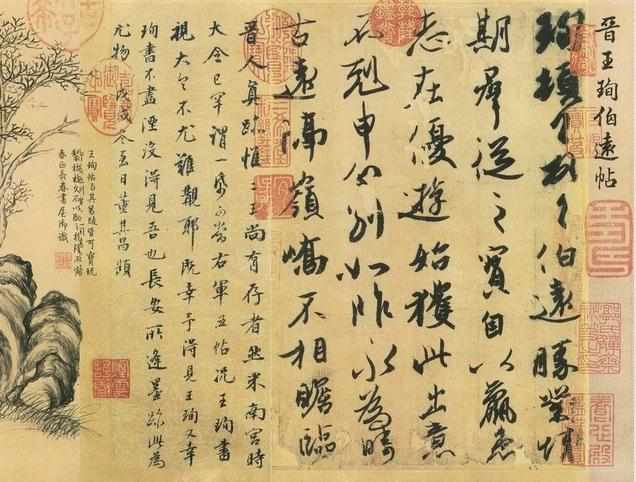 晉王珣伯遠帖
珣頓首頓首伯遠勝業情
期群從之寶自以羸患
志在優遊始獲此出意
不剋申分別如昨永為疇
古遠隔嶺嶠不相瞻臨
晉人真跡惟二王尚有存者然米南宮時
大令已罕謂一紙可當右軍五帖況王珣書
視大令不尤難覯耶既幸予得見王珣又幸
珣書不盡湮沒得見吾也長安所逢墨跡此為
尤物戊戌冬至日董其昌題
王珣帖與其昌跋皆可寶玩
春正長春書屋御識